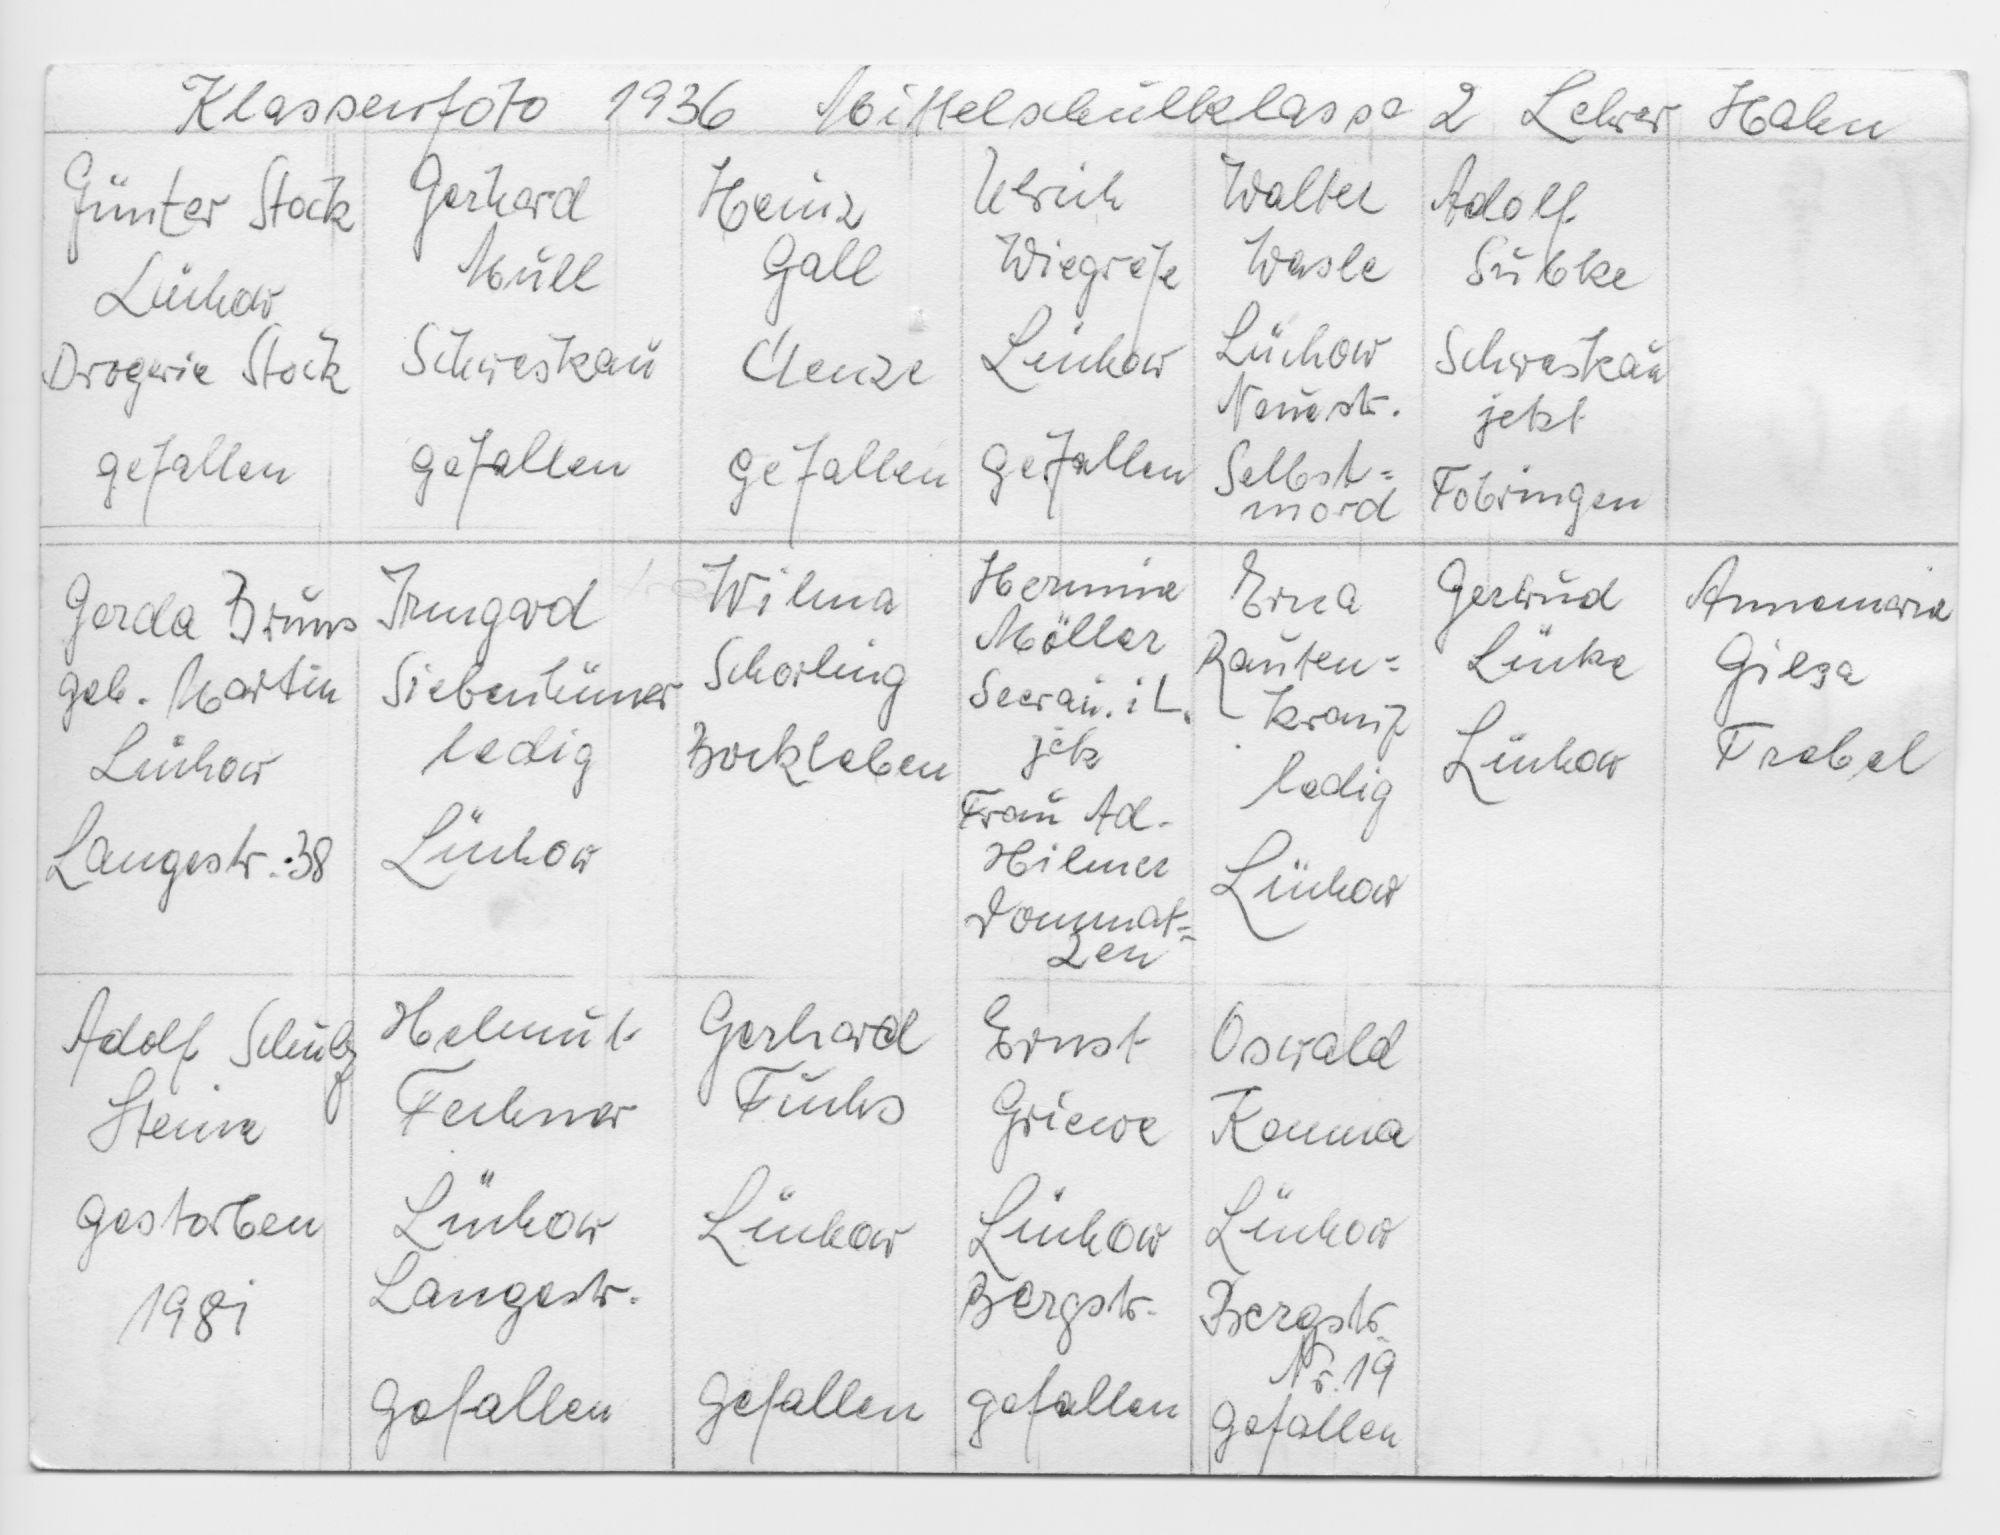 Klassenfoto 1936 Mittelschulklasse 2 Lehrer Hahn
Günter Stock
Lüchow
Drogerie Stock
gefallen
Gerhard
Müll
Schweskau
gefallen
Heinz
Gall
Clenze
gefallen
Ulrich
Wiegrefe
Lüchow
gefallen
Walter
Wasle
Lüchow
Neuestr.
Selbst=
mord
Adolf
Subke
Schweskau
jetzt
Tobringen
Gerda Bruns
geb. Martin
Lüchow
Langestr. 38
Irmgard
Siebenhüner
ledig
Lüchow
Wilma
Schorling
Bockleben
Hermine
Möller
Seerau. i L.
jetz
Frau Ad.
Hilmer
Dommat=
zen
Erna
Rauten=
kranz
ledig
Lüchow
Gertrud
Lühke
Lüchow
Annemarie
Giese
Trebel
Adolf Schulz
Steine
gestorben
1981
Helmut
Fechner
Lüchow
Langestr.
Gefallen
Gerhard
Fuchs
Lüchow
Gefallen
Ernst
Griewe
Lüchow
Bergstr.
gefallen
Oswald
Kamma
Lüchow
Bergstr.
Nr. 19
Gefallen